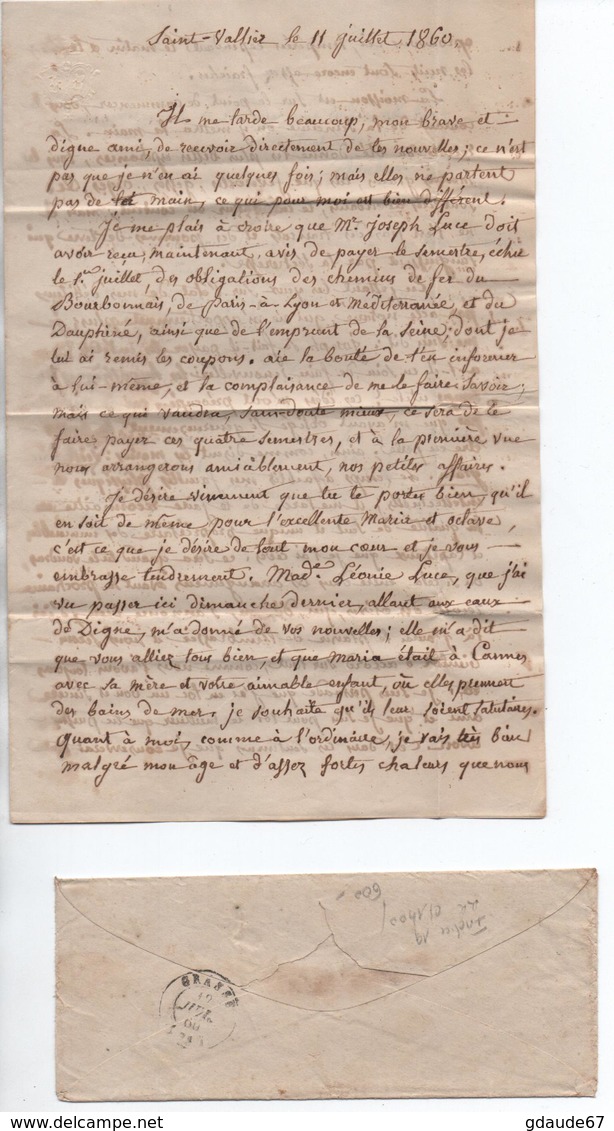 Saint-Vallier le 11 juillet 1860.
Il me tarde beaucoup, mon brave et
digne ami, de recevoir directement de tes nouvelles; ce n'est
pas que je n'en ai quelques fois; mais elles ne partent
pas de ta main, ce qui pour moi est bien différent.
Je me plais à croire que Mr. Joseph Luce doit
avoir reçu, maintenant, avis de payer le semestre, échu
le 1er juillet, des obligations des chemins de fer du
Bourbonnais, de Paris-à-Lyon et Méditerranée, et du
Dauphiné, ainsi que de l'emprunt de la Seine, dont je
lui ai remis les coupons. aie la bonté de t'en informer
à lui-même, et la complaisance de me le faire savoir;
mais ce qui vaudra, sans-doute mieux, ce sera de te
faire payer ces quatre semestres, et à la première vue
nous arrangerons amiablement, nos petites affaires.
Je désire vivement que tu te portes bien, qu'il
en soit de même pour l'excellente Maria et octave,
c'est ce que je désire de tout mon cœur et je vous
embrasse tendrement. Made. Léonie Luce, que j'ai
vu passer ici dimanche dernier, allant aux eaux
de Digne, m'a donné de vos nouvelles; elle m'a dit
que vous alliez tous bien, et que Maria était à Cannes
avec sa mère et votre aimable enfant, où elles prennent
des bains de mer, je souhaite qu'ils leur soient salutaires.
Quant à moi, comme à l'ordinaire, je vais très bien
malgré mon âge et d'assez fortes chaleurs que nous
600
Indice 19
GRASSE
12
JUIL.
60
gdaude67